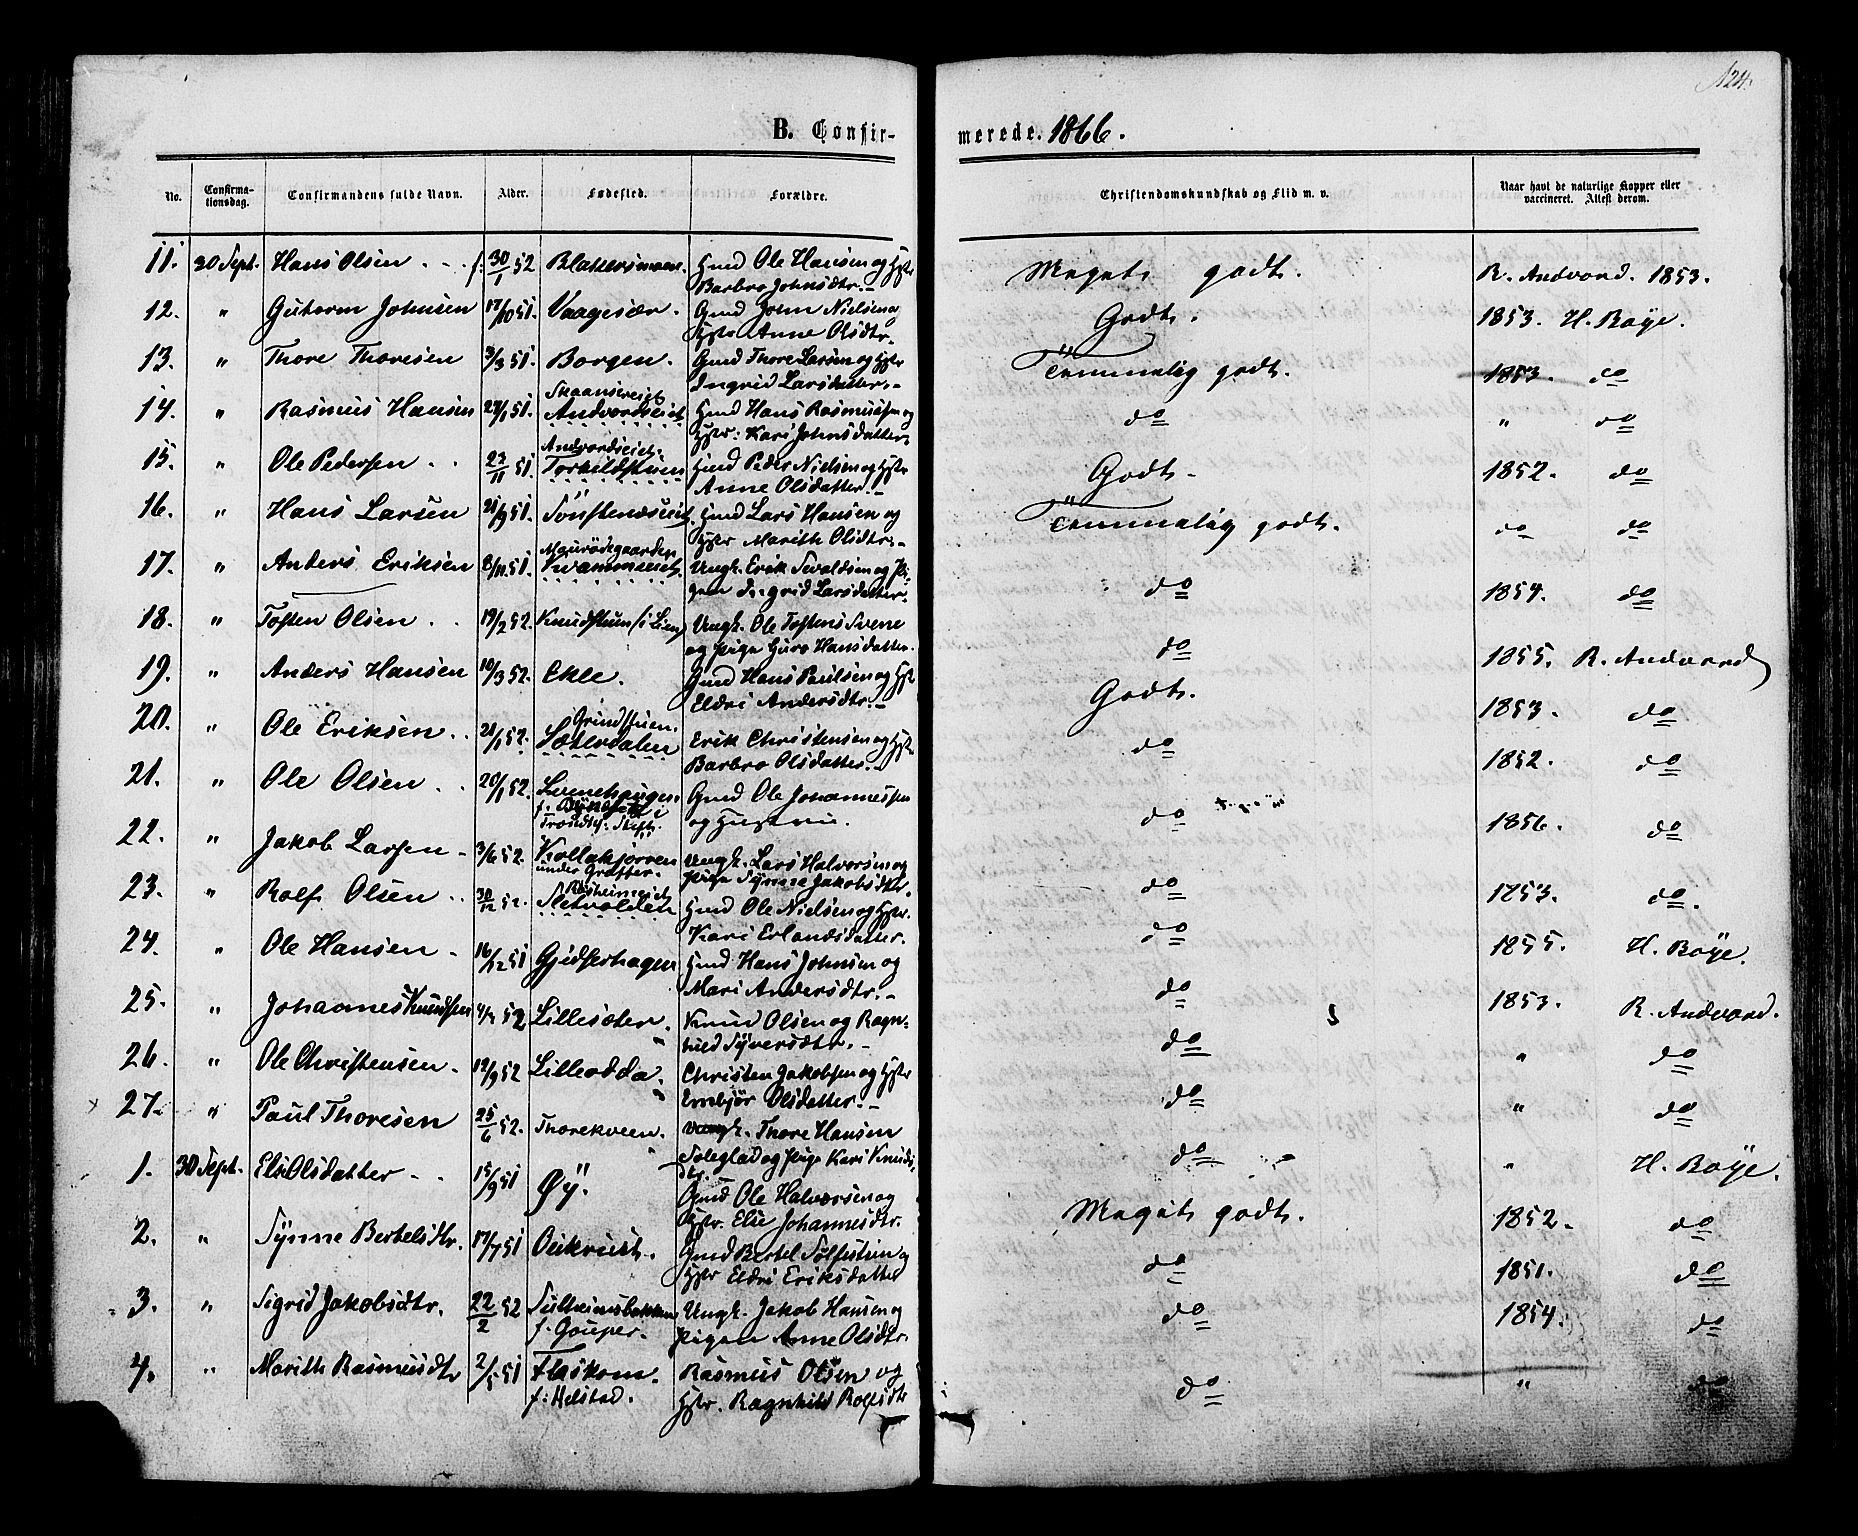 124.
B. Confirmerede. 1866.
No. Confirmationsdag. Confirmandens fulde Navn. Alder. Fødested. Forældre. Christendomskundskab og Flid m. v. Naar havt de naturlige Kopper eller vaccineret. Attest derom.
11. 30 Sept. Hans Olsen f: 30/1 52 Gmd Ole Hansen og Hstr Barbro Johnsdtr. Meget godt. R. Andvord. 1853.
12. " Guttorm Johnsen 17/10 51. Vaagesær. Gmd John Nielsen og Hstr Anne Olsdtr. Godt. 1853. H. Boÿe.
13. " Thore Thoresen 3/3 51. Borgen. Gmd Thore Larsen og Hstr Ingrid Larsdatter. Temmelig godt. 1853. do
14. " Rasmus Hansen 51. Skaanseiet Andvordseiet Hmd Hans Rasmussen og Hstr: Kari Johnsdatter. do " do
15. " Ole Pedersen 51. Andvordseiet. Torkildstuen Hmd Peder Nielsen og Hstr Anne Olsdatter. Godt 1852. do
16. " Hans Larsen 21/9 51. Hmd Lars Hansen og Hstr Marith Olsdtr. Temmelig godt. do do
17. " Anders Eriksen 8/11 51. Kvammseiet. Ungk. Erik Sevaldsen og Pigen Ingrid Larsdatter. do 1854. do
18. " Tosten Olsen 19/2 52. Knudstuen (i Lien) Ungk. Ole Tostens. Svene og Pige Guro Hansdatter. do 1855. R. Andvord
19. " Anders Hansen 10/3 52. Ekle. Gmd Hans Paulsen og Hstr Eldri Andersdtr. Godt. 1853. do
20. " Ole Eriksen 21/1 52. Grindstuen. Sæterdalen Erik Christensen og Hstr Barbro Olsdatter. do 1852. do
21. " Ole Olsen 20/1 52. Gmd Ole Johannessen og Hustru. do 1856. do
22. " Jakob Larsen 3/6 52. Kollekjørren under Graffer. Ungk. Lars Halvorsen og Pige Synne Jakobsdtr. do 1853. do.
23. " Rolf Olsen 30/12 52. Røsheimseiet Hmd Ole Nielsen og Hstr. Kari Erlandsdatter. do 1855. H. Boÿe.
24. " Ole Hansen 16/12 51 Gjedserhagen Hmd Hans Johnsen og Mari Andersdtr. do 1853. R. Andvord.
25. " Johannes Knudsen 52 Lillesæter. Knud Olsen og Ragnhild Syversdtr. do " do
26. " Ole Christensen 19/9 52 Lilleodda. Christen Jakobsen og Hstr Embjør Olsdatter. do " do
27. " Paul Thoresen 25/6 52. Thorekveen. Ungk. Thore Hansen Soleglad og Pige Kari Knudsdtr. do " H. Boÿe.
1. 30 Sept. Eli Olsdatter 15/9 51 Øÿ. Gmd Ole Halvorsen og Hstr. Else Johannesdtr. Meget godt. 1852. do
2. " Synne Bertelsdtr. 17/7 51 Gmd Bertel og Hstr Eldri Eriksdatter do 1851. do
3. " Sigrid Jakobsdtr. 22/2 52 Sulheimsbakken f. Goüper. Ungk. Jakob Hansen og Pigen Anne Olsdtr. do 1854. do
4. " Marith Rasmusdtr 2/5 51 Flaskom. f: Helstad. Rasmus Olsen og Hstr. Ragnhild Rolfsdtr do " do